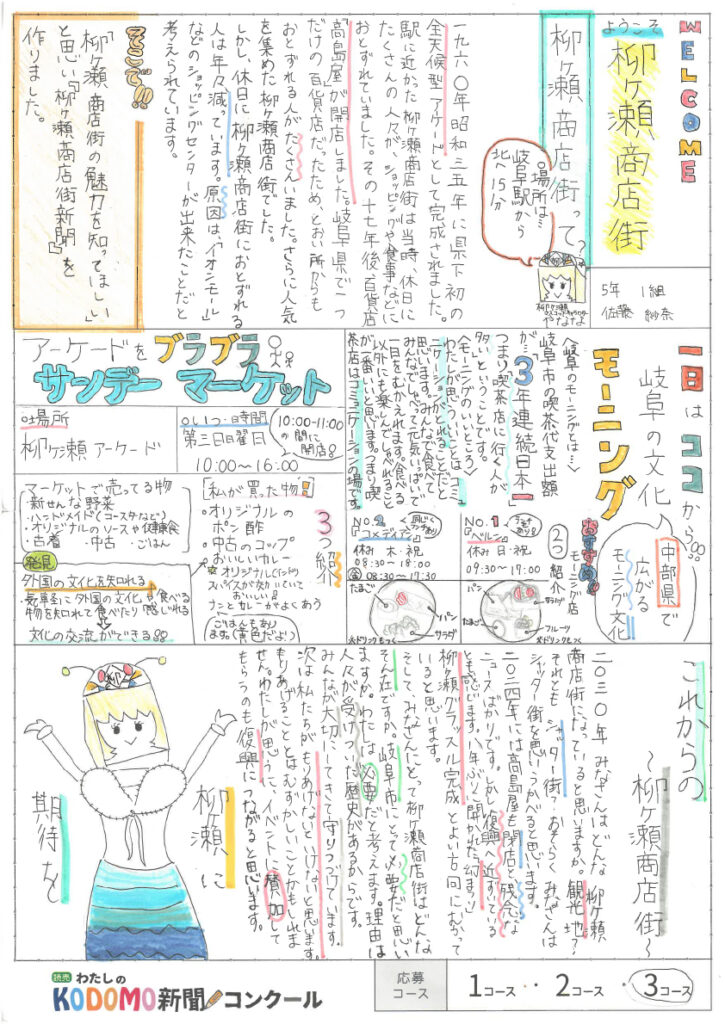 WELCOME
ようこそ
柳ケ瀬商店街
柳ケ瀬商店街って?
場所は…
岐阜駅から
北へ15分
柳ケ瀬
やななな
5年 1組
佐藤 紗奈
一九六〇年昭和三五年に県下初の
全天候型アーケードとして完成されました。
駅に近かった柳ケ瀬商店街は当時、休日に
たくさんの人々が、ショッピングや食事などに
おとずれていました。その十七年後百貨店
「高島屋」が開店しました。岐阜県で一つ
だけの百貨店だったため、とおい所からも
おとずれる人がたくさんいました。さらに人気
を集めた柳ケ瀬商店街でした。
しかし、休日に柳ケ瀬商店街におとずれる
人は年々減っています。原因は、「イオンモール」
などのショッピングセンターが出来たことだと
考えられています。
そこで!!
「柳ケ瀬商店街の魅力を知ってほしい」
と思い、「柳ケ瀬商店街新聞」を
作りました。
一日はココから!!
岐阜の文化
モーニング
中部県で
広がる
モーニング文化
〈岐阜のモーニングとは…〉
岐阜市の喫茶代支出額
が…「3年連続日本一」
つまり「喫茶店に行く人が
多い」ということです。
〈モーニングのいいところ〉
わたしが思ういいことはコミュ
ニケーションがとれることだと
思います。みんなで食べて
みんなでしゃべって元気いっぱいで
一日をむかえれます。食べる
以外にも楽しんでくれること
が一番いいと思います。つまり喫
茶店はコミュニケーションの場です。
おすすめ!!
モーニング店
2つ紹介
No.1
「ベルン」
休み 日・祝
09:30~17:00
パン
サラダ
たまご
フルーツ
※ドリンクもつく
No.2
「コメディアン」
休み 木・祝
08:30~18:00
08:30~17:30
たまご
パン
サラダ
※ドリンクもつく
アーケードをブラブラ
サンデーマーケット
場所
柳ケ瀬アーケード
いつ・時間
第三日曜日
10:00~16:00
10:00-11:00
の間に
開店
マーケットで売ってる物
・新せんな野菜
・ハンドメイド(コースターなど)
・オリジナルのソースや健康食
・古着 ・中古 ・ごはん
発見
外国の文化を知れる
気軽に外国の文化や食べる
物を知れて食べたり感じれる
文化の交流ができる
[私が買った物!]
3つ紹介
・オリジナルの
ポン酢
・中古のコップ
・おいしいカレー
スパイスが効いていて
おいしい!!
ナンとカレーがよくあう
ごはんもあり
ます(黄色だよ)
これからの
~柳ケ瀬商店街~
二〇三〇年みなさんはどんな柳ケ瀬
商店街になっていると思いますか。観光地?
それともシャッター街?おそらくみなさんは
シャッター街を思いうかべると思います。
二〇二四年には高島屋も閉店と残念な
ニュースばかりです。しかし復興に近づいてる
とも感じます。八年ぶりに開かれた「幻まつり」
柳ケ瀬グラッスル完成とよい方向にむかって
いると思います。
そして、みなさんにとって柳ケ瀬商店街はどんな
そん在ですか。岐阜市にとって必要だと思い
ますか。わたしは必要だと考えます。理由は
人々が受けついだ歴史があるからです。
みんなが大切にしてきて守りつづけています。
次は私たちがもりあげないといけないと思います。
もりあげることはむずかしいことかもしれま
せん。わたしが思うに、イベントに賛加して
もらうのも復興につながると思います。
柳ケ瀬に
期待を
読売
わたしの
KODOMO新聞コンクール
応募
コース
1コース・・2コース・・3コース